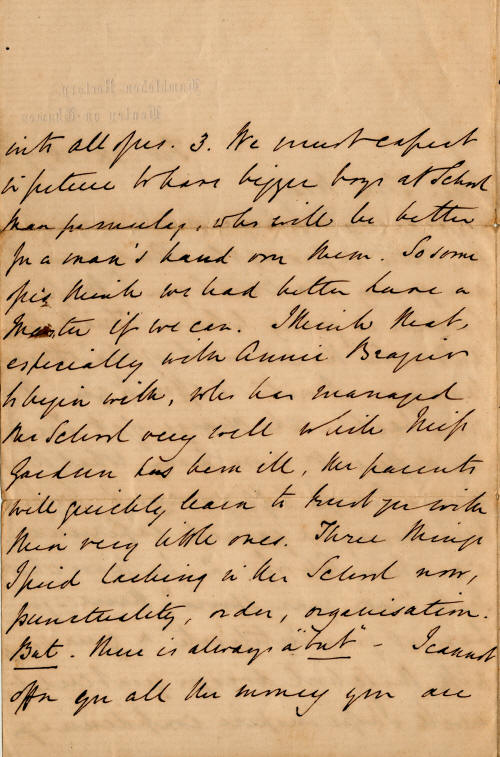 Hambleden Rectory,
Henley on Thames
into all of us. 3. We must expect
in future to have bigger boys at School
than formerly, who will be better
for a man's hand over them. So some
of us think we had better have a
Master if we can. I think that,
especially with Annie
to begin with, who has managed
the School very well while Miss
has been ill, the parents
will quickly learn to trust you with
their very little ones. Three things
I find lacking in the School now,
punctuality, order, organisation.
But. there is always a "but" – I cannot
offer you all the money you are